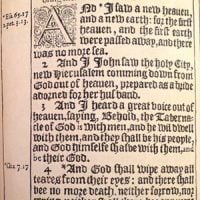 AND *I saw a new heauen,
and a new earth: for the first
heauen, and the first earth
were passed away, and there
was no more sea.
2 And I John saw the holy City,
new Hierusalem comming down from
God out of heauen, prepared as a bride
adorned for her husband.
3 And I heard a great voice out of
heauen, saying, Behold, the Taberna-
cle of God is with men, and he wil dwell
with them, and they shall be his people,
and God himselfe shalbe with them, and be
their God.
4 *And God shall wipe away all
teares from their eyes: and there shall
bee no more death, neither sorrow, nor
2.pet.3.13.
7.17